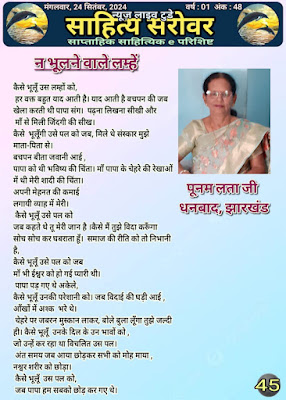 मंगलवार, 24 सितंबर, 2024
वर्ष : 01 अंक : 48
न्यूज लाइव टुडे
साहित्य सरोवर
साप्ताहिक साहित्यिक e परिशिष्ट
न भूलने वाले लम्हें
कैसे भूलूँ उस लम्हों को,
हर वक्त बहुत याद आती है। याद आती है बचपन की जब
खेला करती थी पापा संग।  पढ़ना लिखना सीखी और
माँ से मिली जिंदगी की सीख।
कैसे  भूलूँगी उस पल को जब, मिले थे संस्कार मुझे
माता-पिता से।
बचपन बीता जवानी आई ,
पापा को थी भविष्य की चिंता। माँ पापा के चेहरे की रेखाओं
में थी मेरी शादी की चिंता।
अपनी मेहनत की कमाई
लगायी व्याह में मेरी।
कैसे  भूलूँ उसे पल को
जब कहते थे तू मेरी जान है ।कैसे मैं तुझे विदा करूँगा
सोच सोच कर घबराता हूँ।  समाज की रीति को तो निभानी
है,
कैसे भूलूँ उसे पल को जब
माँ भी ईश्वर को हो गई प्यारी थी।
पापा पड़ गए थे अकेले,
कैसे भूलूँ उनकी परेशानी को। जब विदाई की घड़ी आई ,
आँखों में अश्क  भरे थे।
चेहरे पर जबरन मुस्कान लाकर, बोले बुला लूँगा तुझे जल्दी
ही। कैसे भूलूँ  उनके दिल के उन भावों को ,
जो उन्हें कर रहा था विचलित उस पल।
अंत समय जब आया छोड़कर सभी को मोह माया ,
नश्वर शरीर को छोड़ा।
कैसे भूलूँ  उस पल को,
जब पापा हम सबको छोड़ कर गए थे।
पूनम लता जी
धनबाद, झारखंड
45